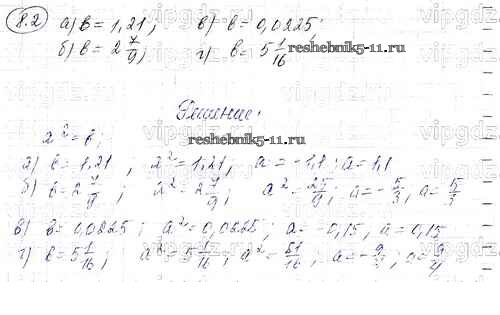 8.2 а) b = 1,21; в) b = 0,0225;
б) b = 2 7/9; г) b = 5 1/16
reshebnik5-11.ru
Решение:
reshebnik5-11.ru
a² = b;
а) b = 1,21; a² = 1,21, a = -1,1; a = 1,1
б) b = 2 7/9; a² = 2 7/9; a² = 25/9; a = -5/3, a = 5/3
в) b = 0,0225; a² = 0,0225; a = -0,15, a = 0,15
г) b = 5 1/16; a² = 5 1/16; a² = 81/16; a = -9/4; a = 9/4